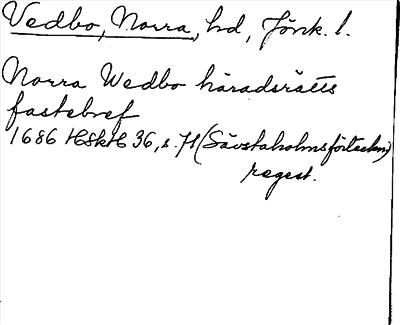 Vedbo, Norra, hd, Jönk. l.
Norra Wedbo häradsrätts
fastebref
1686 HskH 36, s. 71 (Sävstaholmsförteckn)
regest.